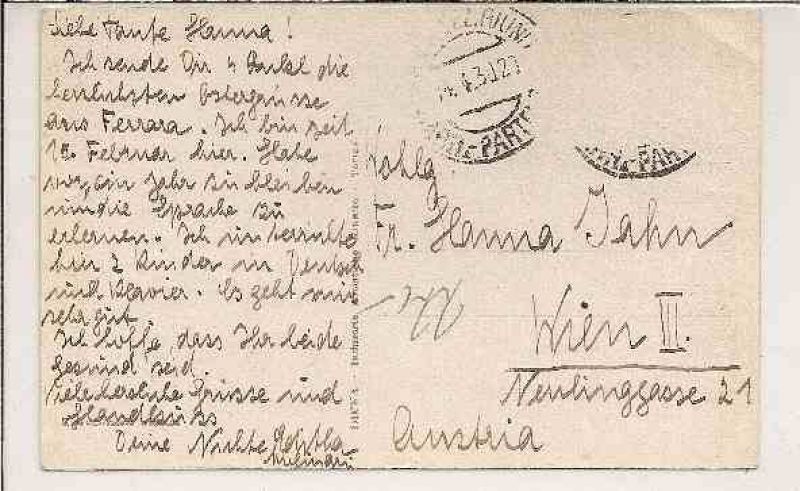 Liebe Tante Hanna!
Ich sende Dir u Onkel die
herzlichsten Ostergrüsse
aus Ferrara. Ich bin seit
Februar hier. Habe
vor, ein Jahr zu bleiben
um die Sprache zu
erlernen. Ich unterrichte
hier 2 Kinder in Deutsch
und Klavier. Es geht mir
sehr gut.
Ich hoffe, dass Ihr beide
gesund seid.
Viele herzliche Grüsse und
Handkuss
Deine Nichte
Wohlg
Fr. Hanna Jahn
Wien III.
Neulinggasse 21
Austria
PART
PAR